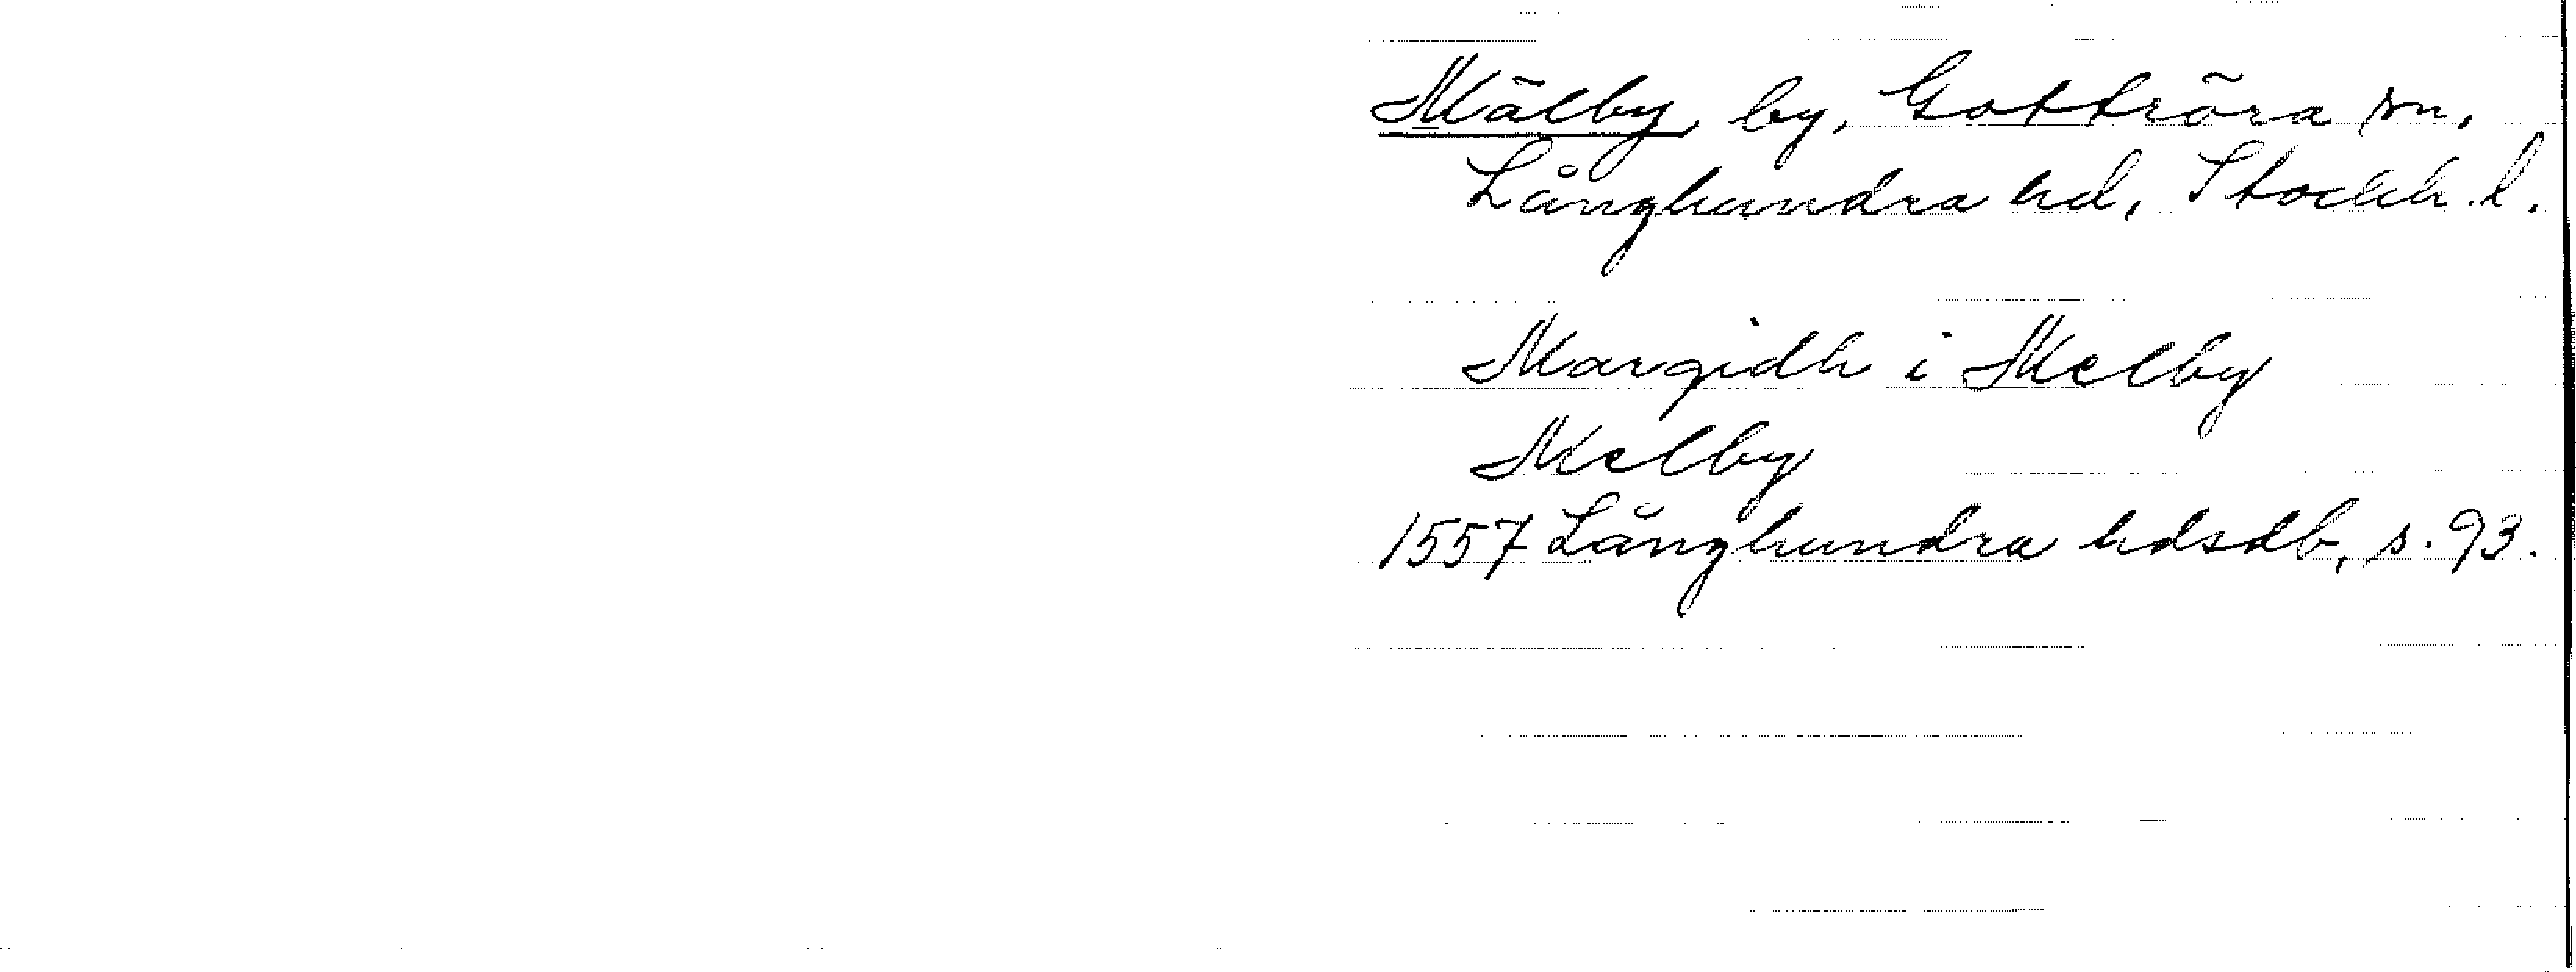 Mälby, by, Gottröra sn,
Långhundra hd, Stockh. l.
Margidh i Melby
Melby
1557 Långhundra hdsdb, s. 93.